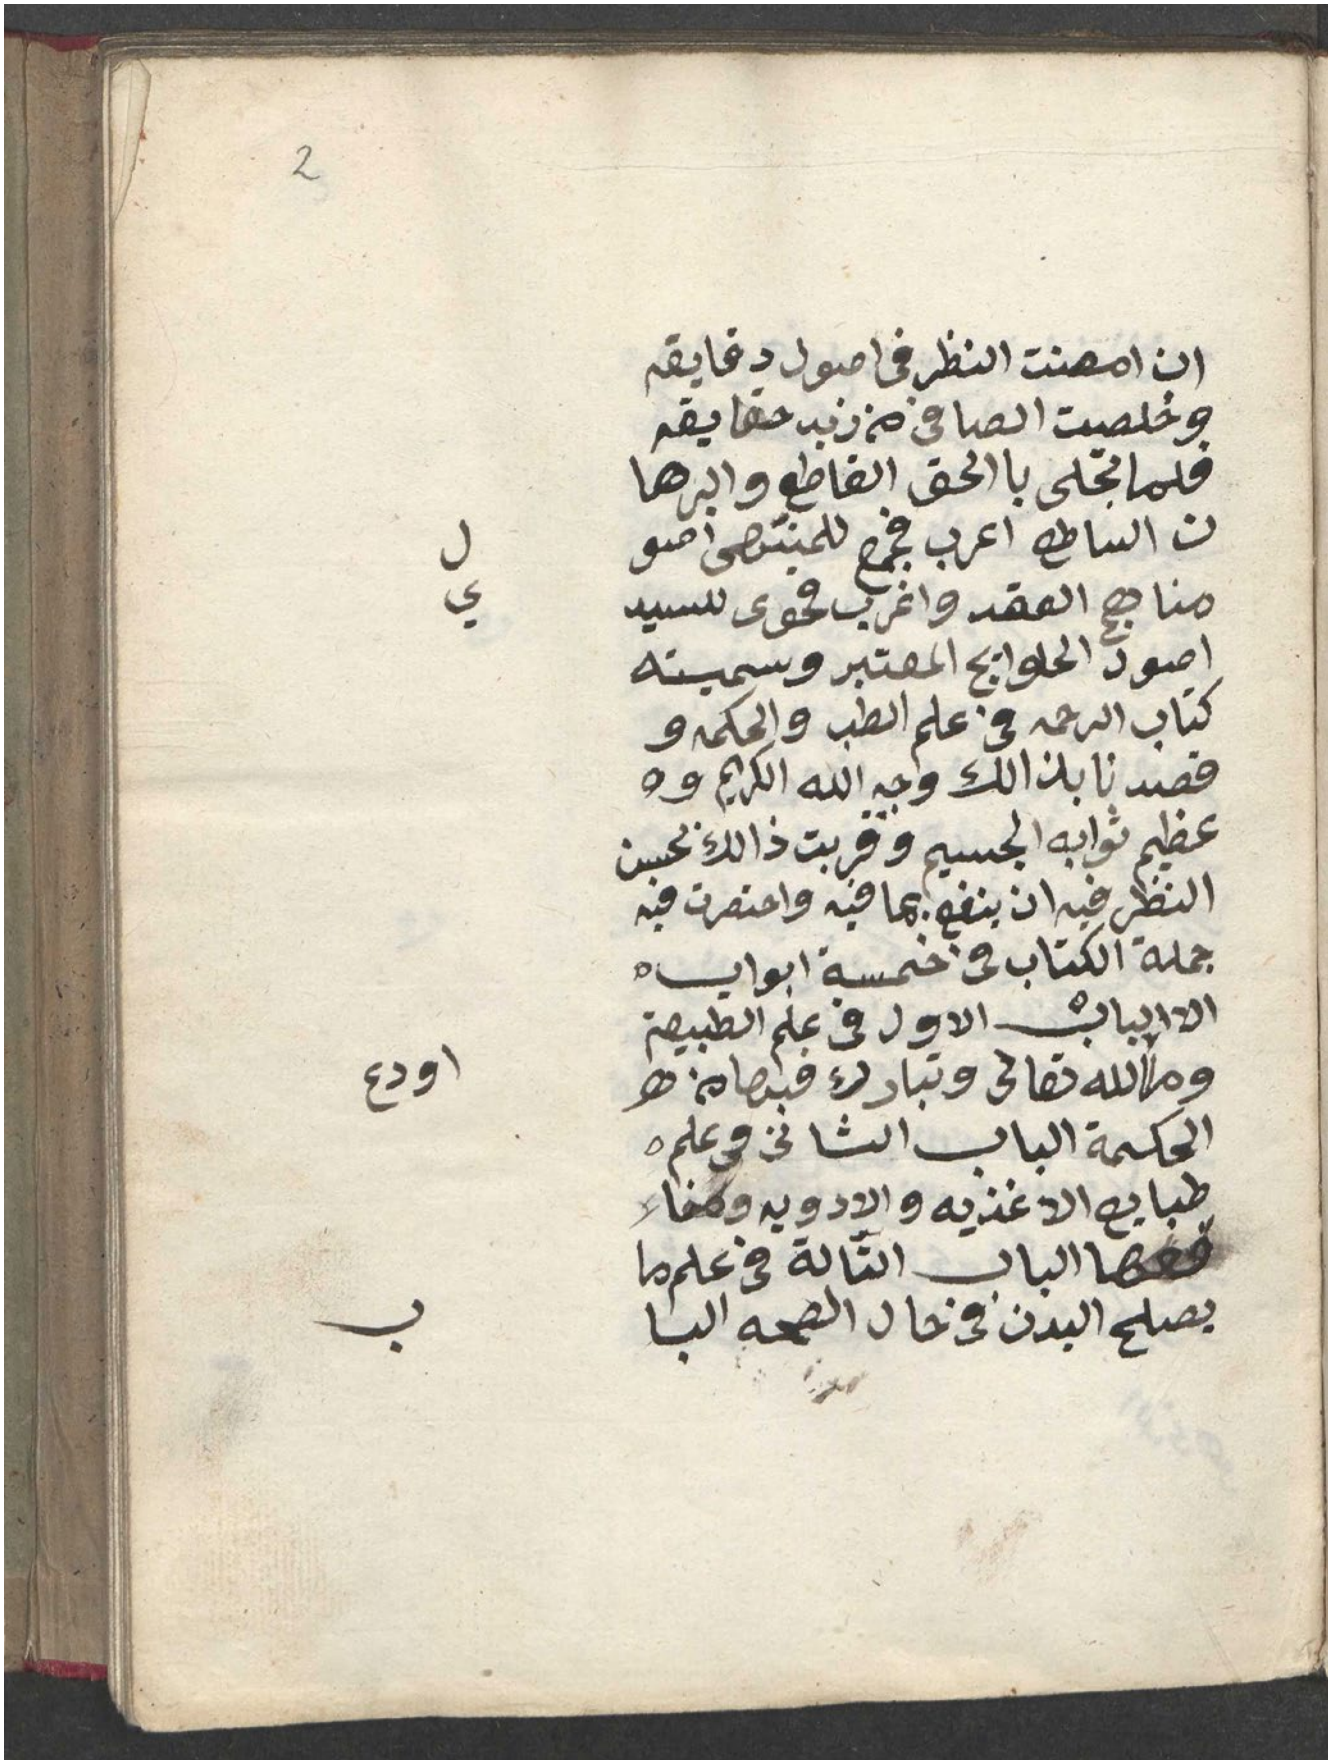 2
ان امعنت النظر في اصول دقايقه
وخلصت الصافي من زبد حقايقه
فلما تجلى با الحق القاطع والبرها
ن الساطع اعرب فجمع للمنتهى اصو
ل
مناهج العقد واغرب فحوى للسيد
ي
اصول الحلوايج المعتبر وسميته
كتاب الرحمه في علم الطب والحكمه و
قصدنا بذالك وجه الله الكريم وه
عظيم ثوابه الجسيم وقربت ذالك لحسن
النظر فيه ان ينفع بما فيه واختصرت فيه
جملة الكتاب في خمسة ابواب ه
الا الباب الاول في علم الطبيعة
وما الله تعالى وتبارك فيها من
اودع
الحكمة الباب الثاني في علم ه
طبايع الاغذيه والادويه ومنا
فعها الباب الثالة في علم ما
يصلح البدن في حال الصحه البا
ب